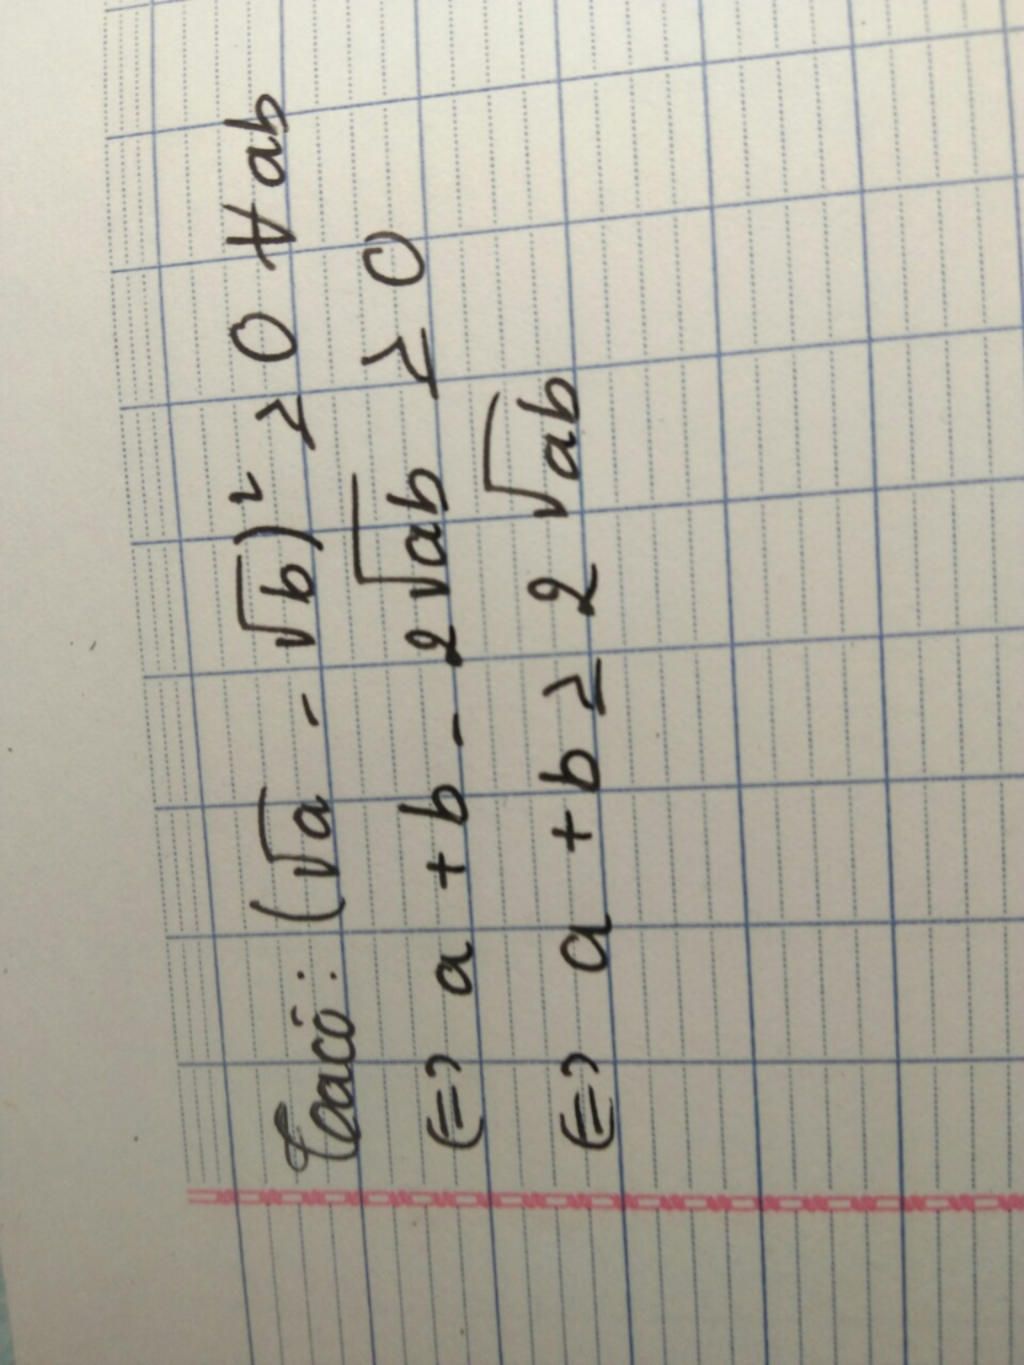 Ta có: (√a - √b)² ≥ 0 ∀ ab
⇔ a + b - 2√ab ≥ 0
⇔ a + b ≥ 2√ab